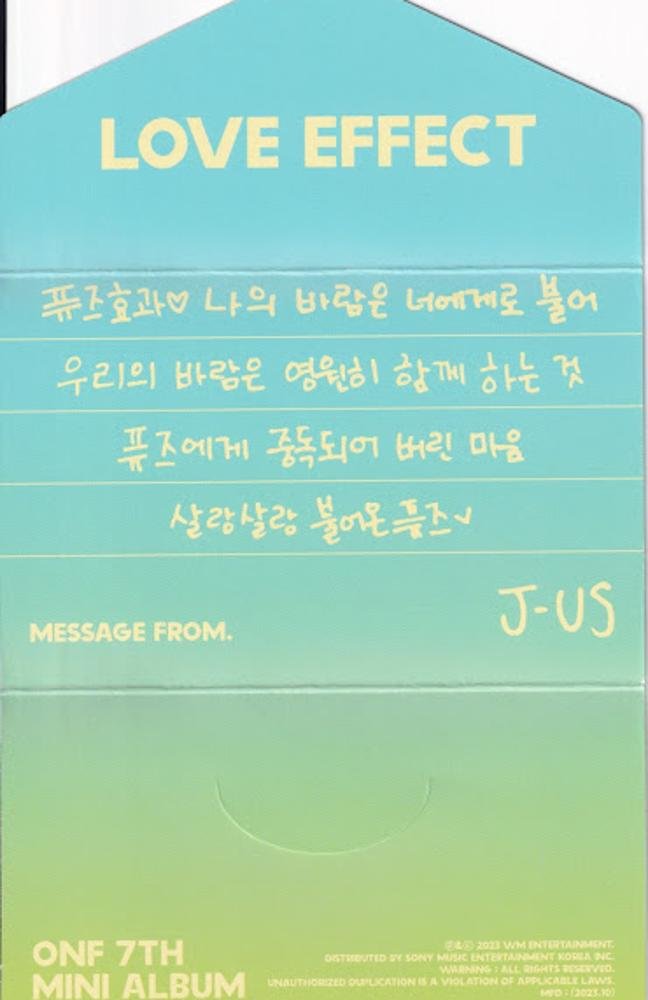 LOVE EFFECT
퓨즈효과♡ 나의 바람은 너에게로 불어
우리의 바람은 영원히 함께 하는 것
퓨즈에게 중독되어 버린 마음
살랑살랑 불어온 퓨즈✓
J-US
MESSAGE FROM.
ONF 7TH
MINI ALBUM
Ⓟ&ⓒ 2023 WM ENTERTAINMENT.
DISTRIBUTED BY SONY MUSIC ENTERTAINMENT KOREA INC.
WARNING : ALL RIGHTS RESERVED.
UNAUTHORIZED DUPLICATION IS A VIOLATION OF APPLICABLE LAWS.
MFD : (2023.10)